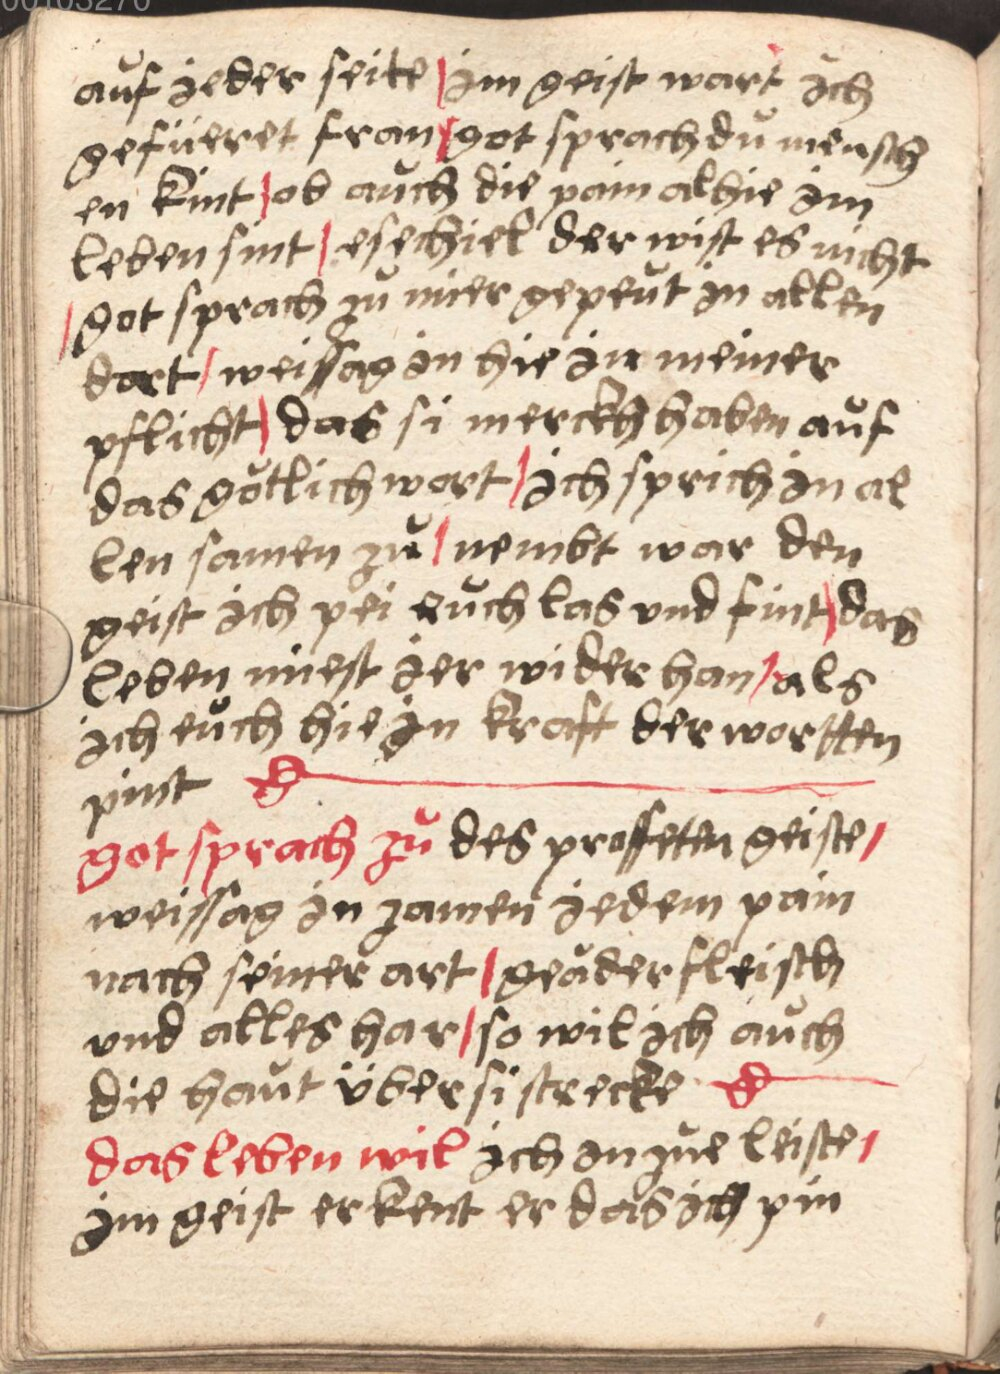 00103270
auf jeder seite / jm geist wart jch
gefüeret fran / got sprach du mensch
en kint / ob auch die pain alhie jm
leben sint / esechiel der wist es nicht
/ got sprach zu mier gepeut jn allen
dort / weissag jn hie jn meiner
pflicht / das si merckh haben auf
das götlich wort / jch sprich jn al
len samen zu / nembt war den
geist jch pei euch las vnd fint / das
leben müest jer wider han / als
jch euch hie jn kraft der wortten
pint
got sprach zu des proffeten geiste /
weissag jn zamen jedem pain
nach seiner art / geäder fleisch
vnd alles har / so wil jch auch
die haut über si strecke
das leben wil jch jn zue leiste /
jm geist erkent er das jch pin